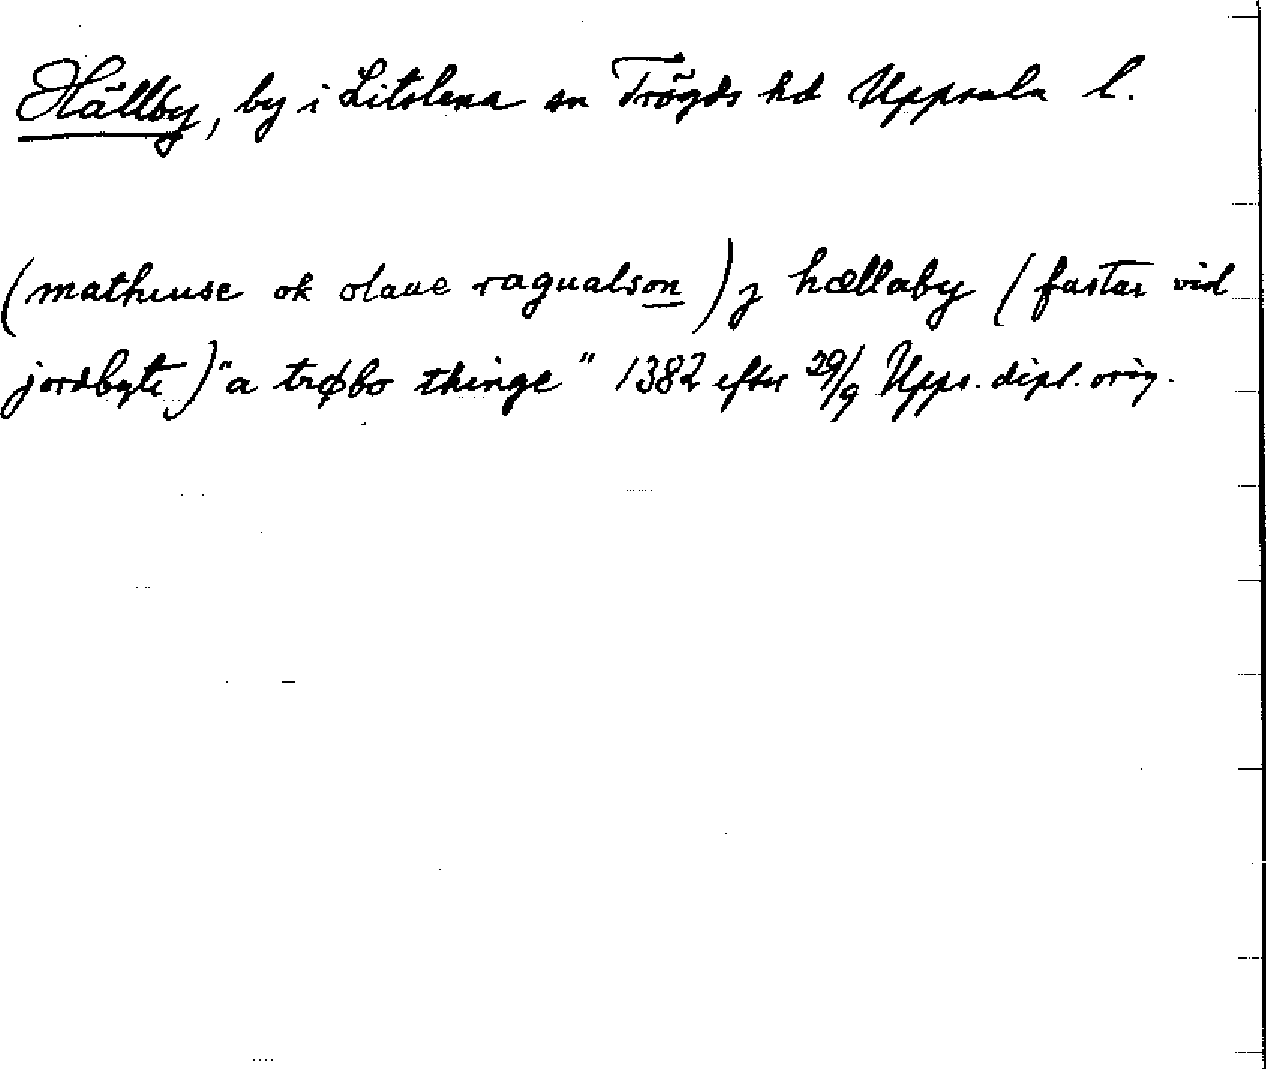 Hällby, by i Litslena sn Trögds hd Uppsala l.
(matheuse ok olaue ragualson) j hællaby (fastar vid
jordbyte) "a trøbo thinge" 1382 efter 29/9 Upps. dipl. orig.